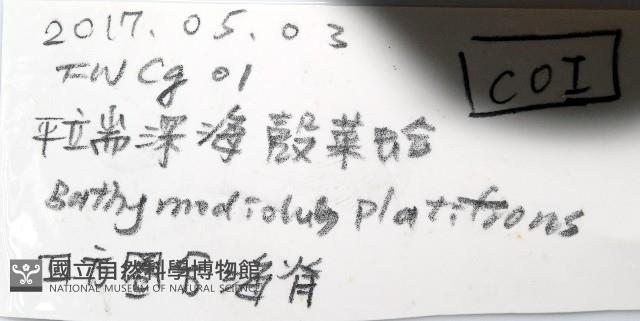 2017.05.03
COI
TWCg 01
平端深海殼菜蛤
Bathymodiolus platifrons
國立自然科學博物館
NATIONAL MUSEUM OF NATURAL SCIENCE